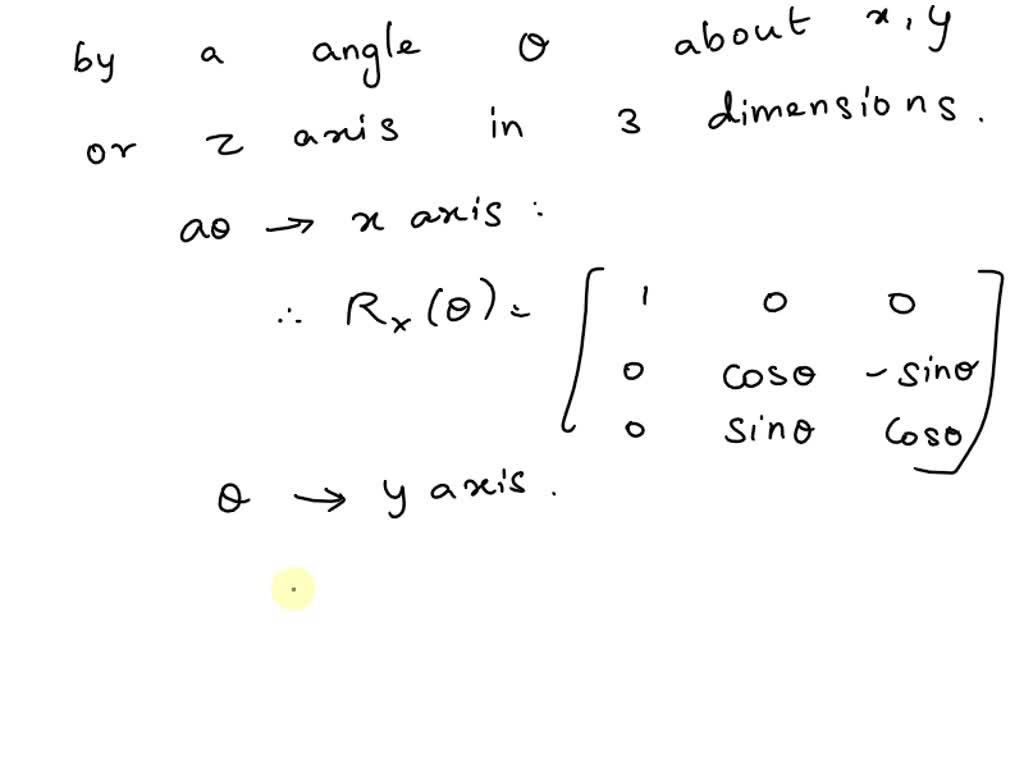 by a angle θ about x, y
or z axis in 3 dimensions.
aθ → x axis :
∴ Rx(θ) = [ 1 0 0
0 cosθ - sinθ
0 sinθ cosθ ]
θ → y axis .